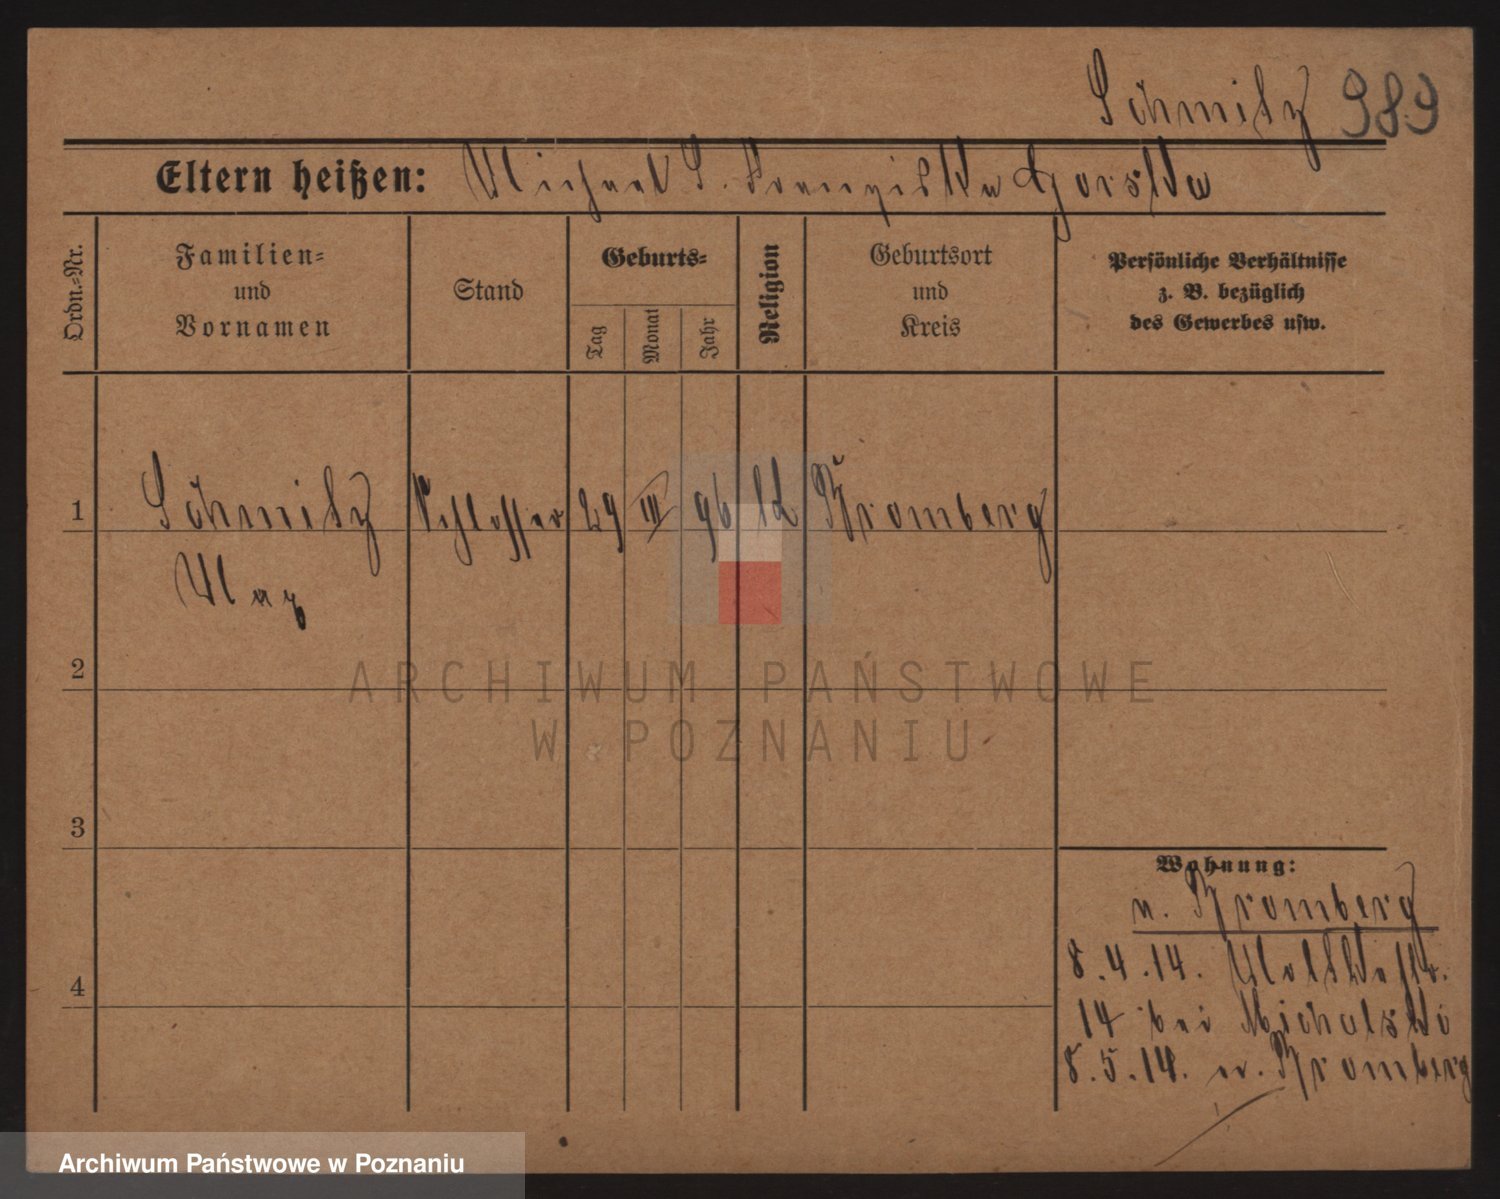 Schmilz 989
Eltern heißen: Michael S. Franziska Gorska
Ordn.-Nr.
Familien-
und
Vornamen
Stand
Geburts-
Tag
Monat
Jahr
Religion
Geburtsort
und
Kreis
Persönliche Verhältnisse
z. B. bezüglich
des Gewerbes usw.
1 Schmilz Schlosser 29 III 96 Bromberg
Max
2
3
4
Wohnung:
n. Bromberg
8.4.14.
14 bei Michalski
8.5.14. n. Bromberg
ARCHIWUM PAŃSTWOWE
W POZNANIU
Archiwum Państwowe w Poznaniu